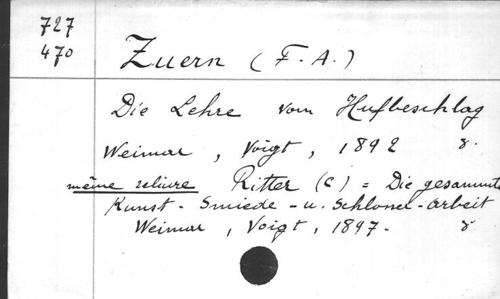 727
470
Zuern (F. A.)
Die Lehre vom Hufbeschlag
Weimar, Voigt, 1892 8.
même reliure Ritter (C) = Die gesammte
Kunst - Smiede - u. Schlossel - arbeit
Weimar, Voigt, 1897. 8